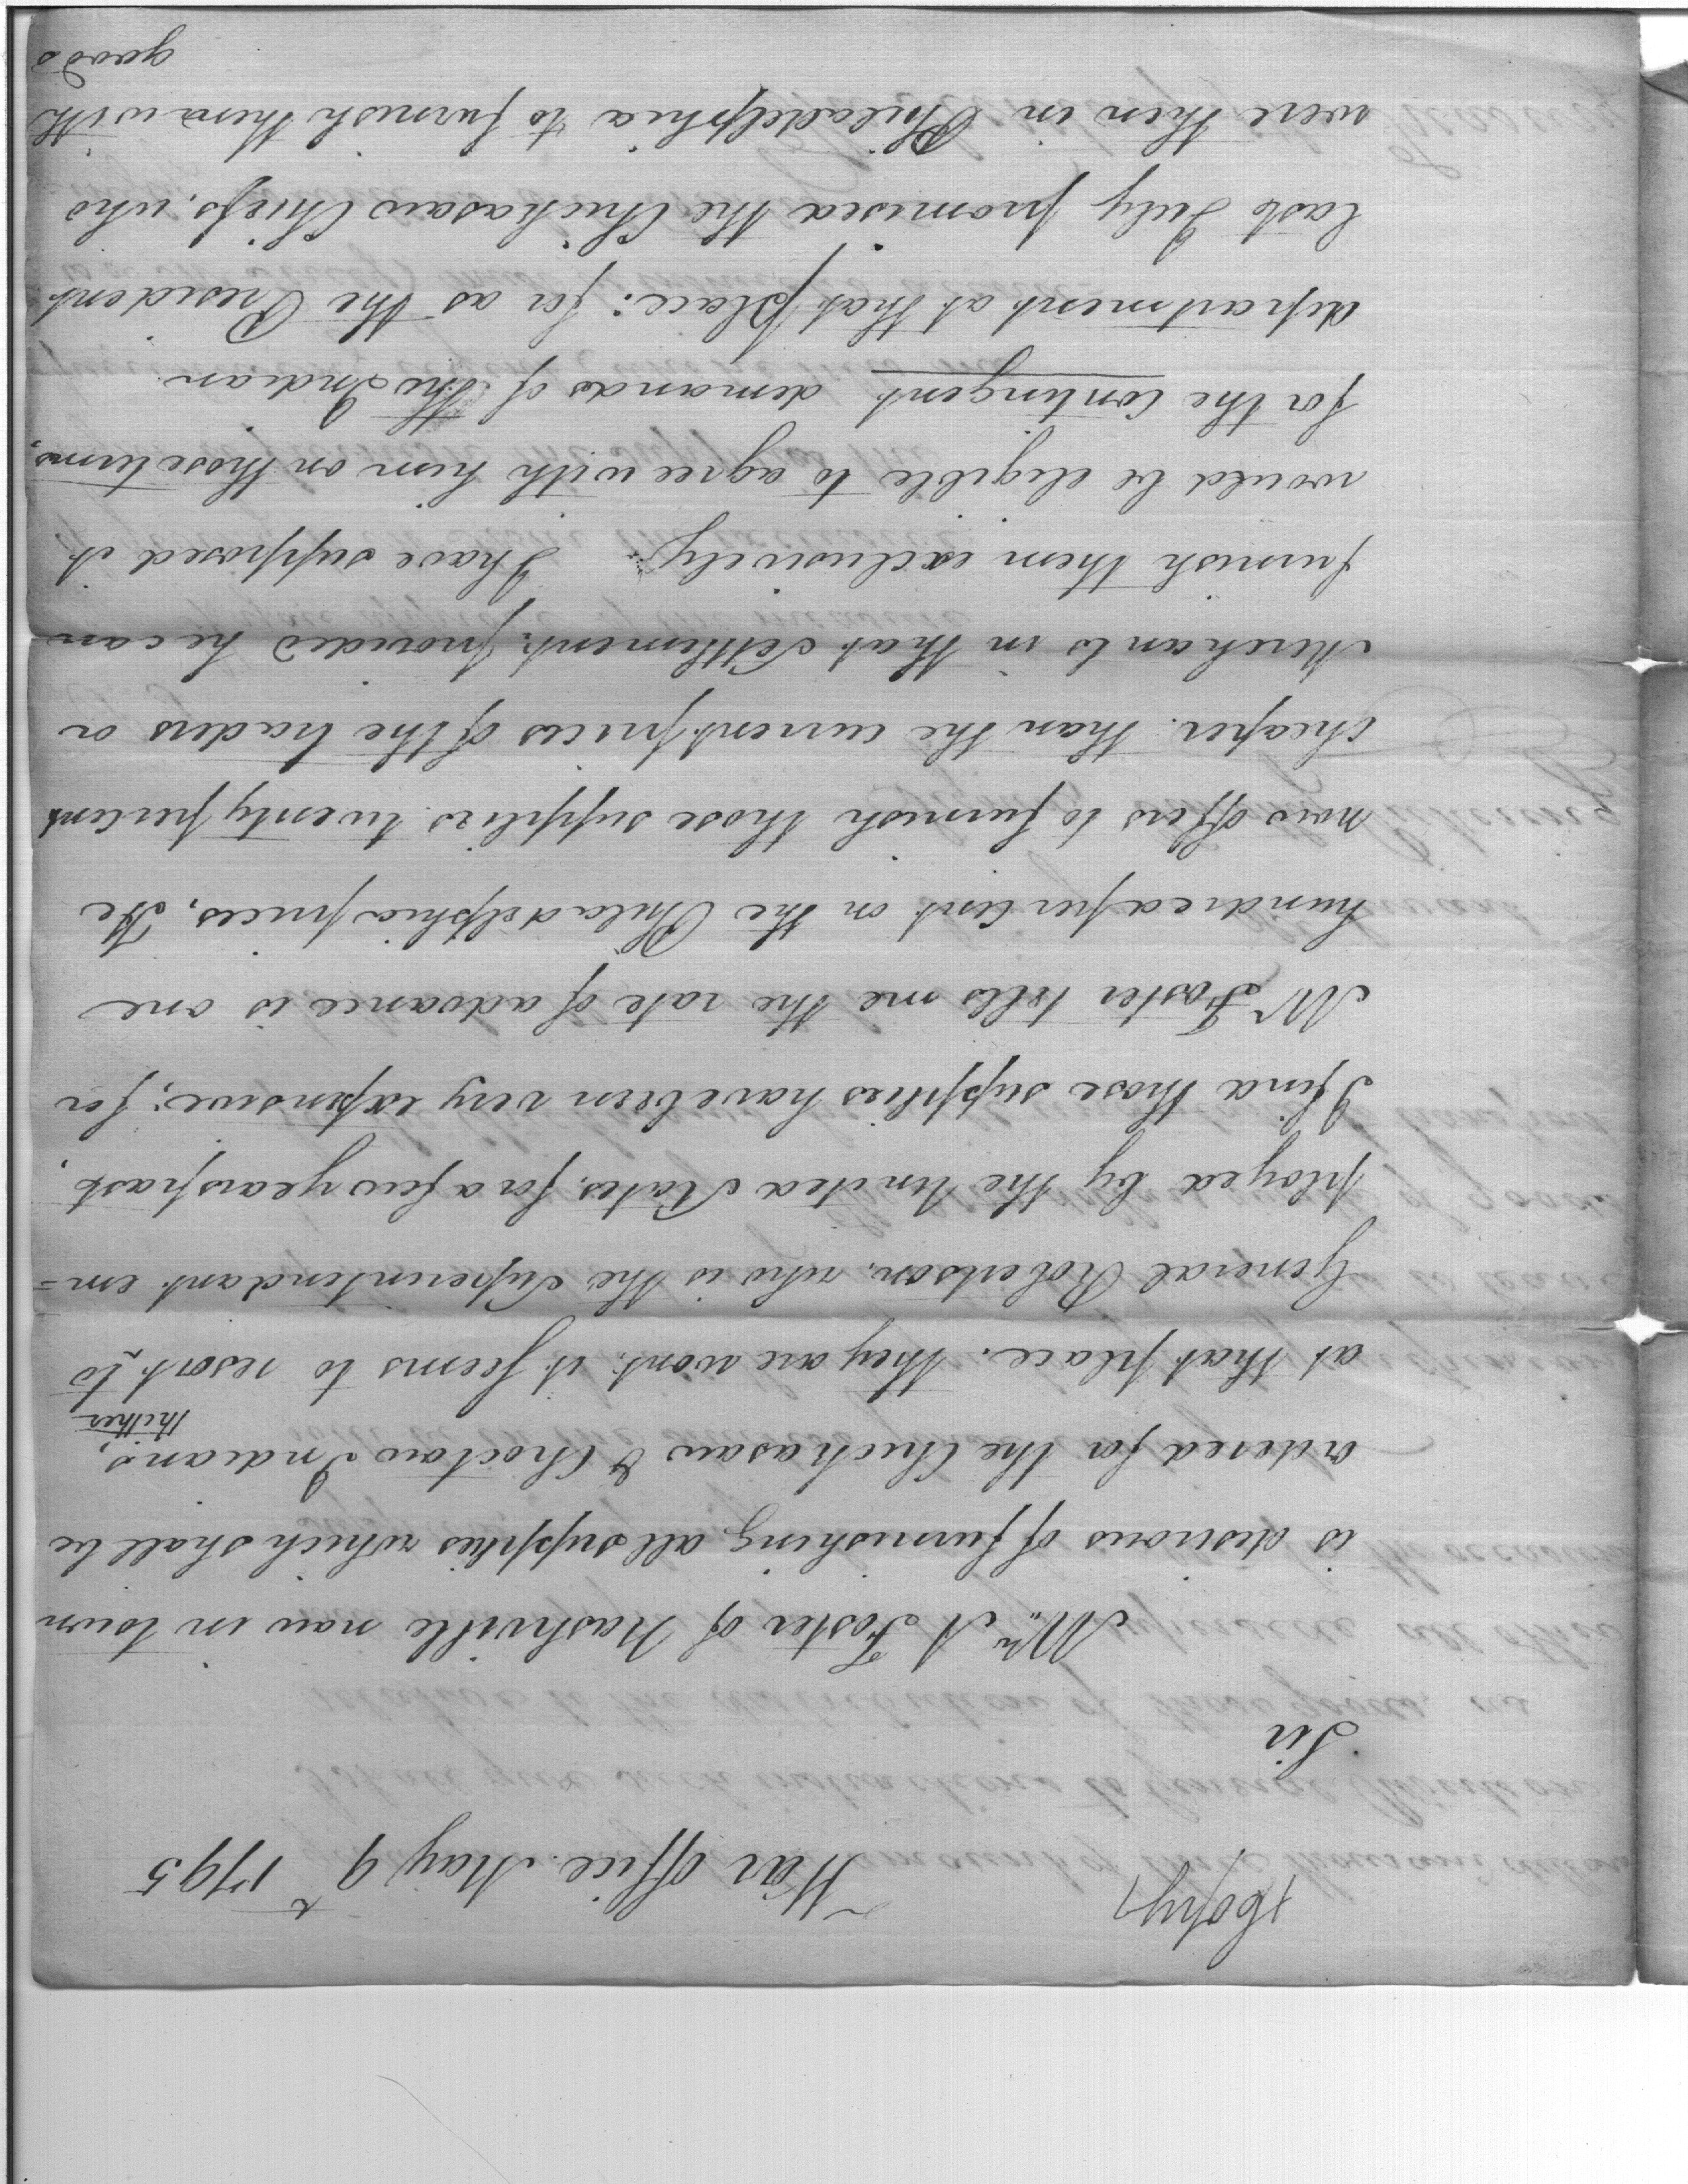 (Copy)
War office May 9th 1795
Sir
Mr. A Foster of Nashville now in town
is desirous of furnishing all supplies which shall be
ordered for the Chickasaw & Choctaw Indians,
thither
at that place. They are wont, it seems to resort to
General Robertson, who is the Superintendant em=
ployed by the United States, for a few years past,
I find those supplies have been very expensive; for
Mr Foster tells me the rate of advance is one
hundred per Cent on the Philadelphia prices, He
now offers to furnish those supplies twenty per Cent
cheaper than the current prices of the traders or
Merchants in that Settlement; provided he can
furnish them exclusively. I have supposed it
would be eligible to agree with him on those terms,
for the Contingent demands of the Indian
department at that place: for as the President
last July promised the Chickasaw Chiefs, who
were then in Philadelphia to furnish them with
goods